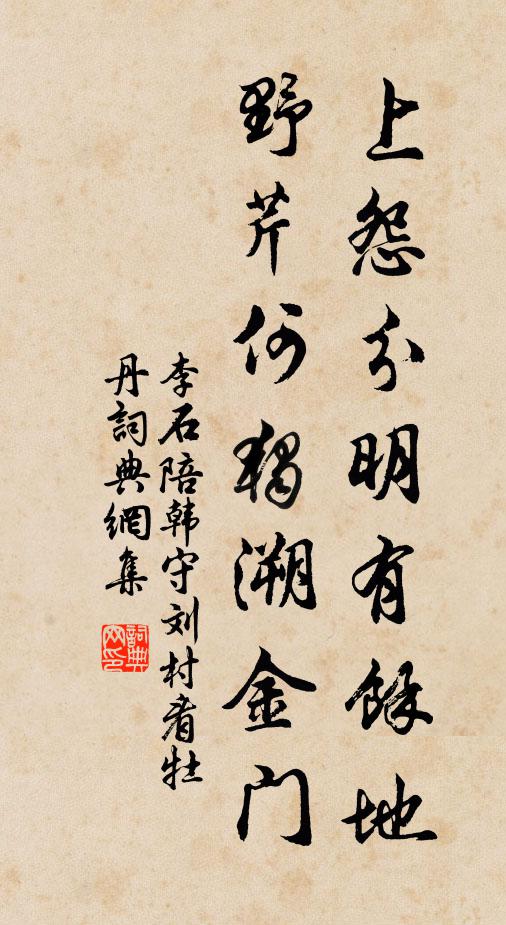 上怨分明有餘地
野芹何独溯金门
李石陪韩守刘村看牡
丹詞典網集
詞典網印